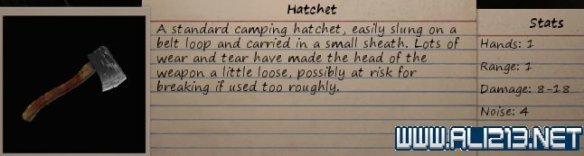 Hatchet
A standard camping hatchet, easily slung on a
belt loop and carried in a small sheath. Lots of
wear and tear have made the head of the
weapon a little loose, possibly at risk for
breaking if used too roughly.
Stats
Hands: 1
Range: 1
Damage: 8-18
Noise: 4
WWW.ALI213.NET